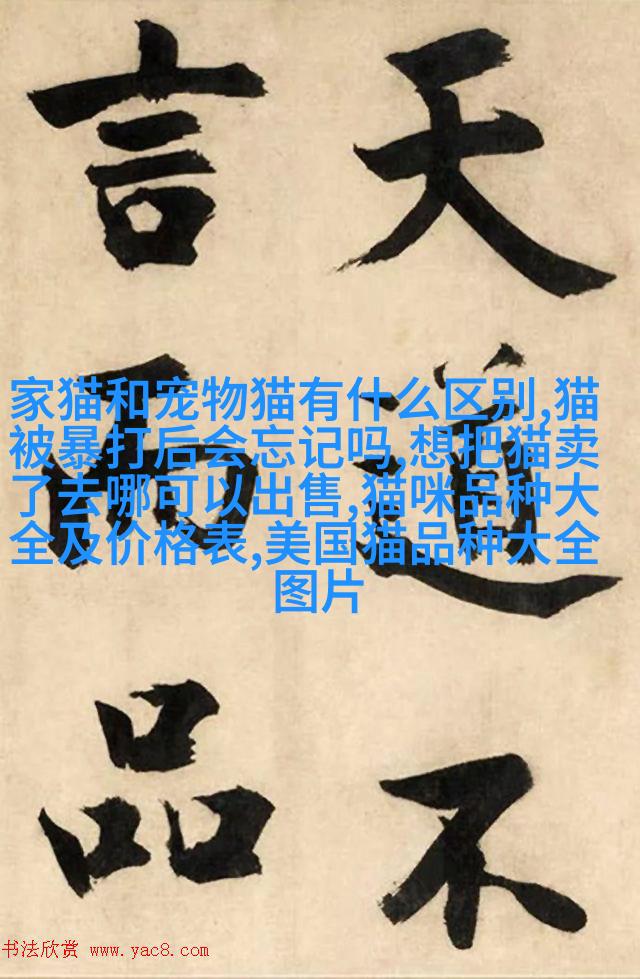 天道不
言而品
家猫和宠物猫有什么区别,猫
被暴打后会忘记吗,想把猫卖
了去哪可以出售,猫咪品种大
全及价格表,美国猫品种大全
图片
书法欣赏 www.yac8.com